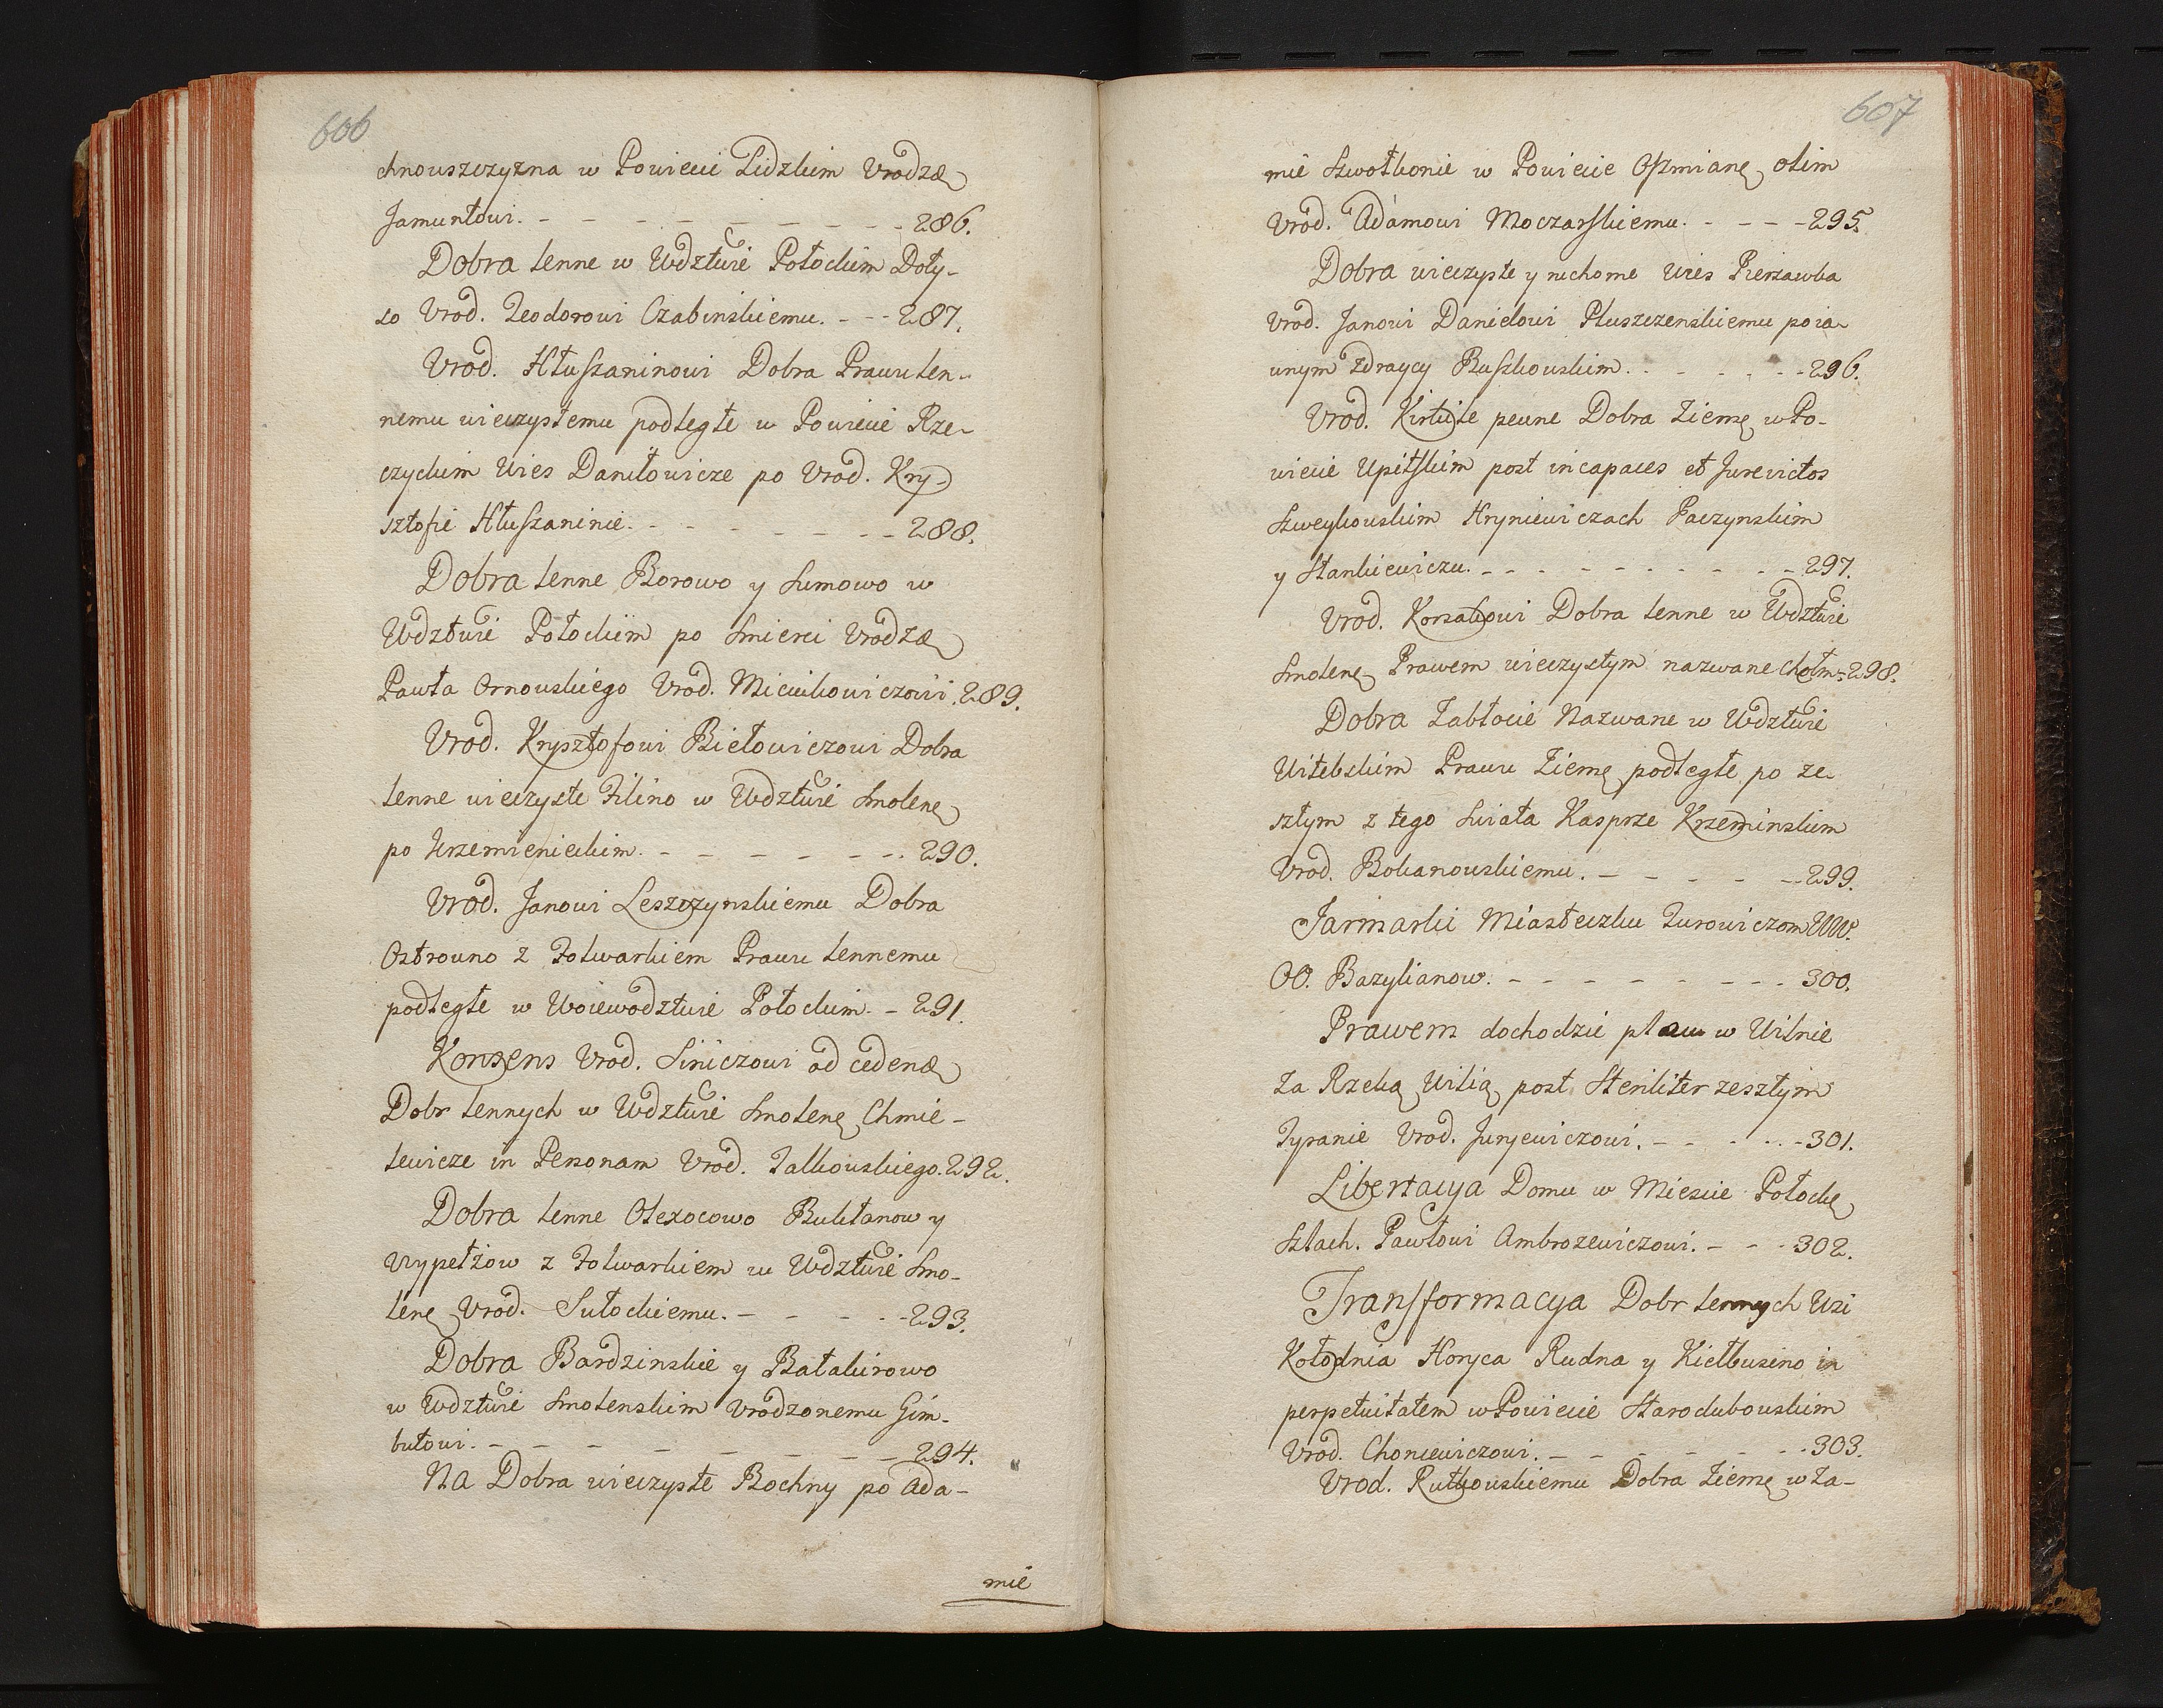 606
chnouszczyzna w Powiecie Lidzkim Vrodzæ
Jamuntowi. - - - - - - - - 286.
Dobra lenne w Wdztwie Połockim Doły-
so Vrod. Teodorowi Czabinskiemu. - - - 287.
Vrod. Hłuszaninowi Dobra Prawu len-
nemu wieczystemu podległe w Powiecie Rze-
czyckim Wies Daniłowicze po Vrod. Kry-
sztofie Hłuszaninie. - - - - - - 288.
Dobra lenne Borowo y Sumowo w
Wdztwie Połockim po Smierci Vrodzæ
Pawła Ornowskiego Vrod. Miciukowiczowi. 289.
Vrod. Krysztofowi Biełowiczowi Dobra
lenne wieczyste Filino w Wdztwie Smolenę
po Krzemienieckim. - - - - - - 290.
Vrod. Janowi Leszczynskiemu Dobra
Ostrowno z Folwarkiem Prawu lennemu
podległe w Woiewodztwie Połockim. - 291.
Konsens Vrod. Siniczowi ad cedendæ
Dobr lennych w Wdztwie Smolenę Chmie-
lewicze in Personam Vrod. Zalkowskiego. 292.
Dobra lenne Olexocowo Bułtanow y
Wypełzow z Folwarkiem w Wdztwie Smo-
lenę Vrod. Sułockiemu. - - - - - 293.
Dobra Bardzinskie y Bałakirowo
w Wdztwie Smolenskim Vrodzonemu Gim-
butowi. - - - - - - - - 294.
Na Dobra wieczyste Bochny po Ada-
mie
607
mie Szwołkonie w Powiecie Oszmianę olim
Vrod. Adamowi Moczarskiemu. - - - - 295.
Dobra wieczyste y ruchome Wies Pierzawka
Vrod. Janowi Danielowi Pluszczenskiemu po ia-
wnym Zdraycy Buszkowskim. - - - - - 296.
Vrod. Kirkile pewne Dobra Ziemę w Po-
wiecie Upitskim post incapaces et Jurevictos
Szweykowskim Hryniewiczach Paczynskim
y Stankiewiczu. - - - - - - - - - 297.
Vrod. Korsakowi Dobra lenne w Wdztwie
Smolenę Prawem wieczystym nazwane Chełm-298.
Dobra Zabłocie Nazwane w Wdztwie
Witebskim Prawu Ziemę podległe, po ze-
szłym z tego Swiata Kasprze Krzeminskim
Vrod. Bohanowskiemu. - - - - - 299.
Jarmarki Miasteczku Jurowiczom WW.
OO. Bazylianow. - - - - - - - - 300.
Prawem dochodzic placu w Wilnie
za Rzeką Wilią post Steriliter zeszłym
Tyranie Vrod. Juryewiczowi. - - - - - 301.
Libertacya Domu w Miescie Połockę
Szlach. Pawłowi Ambrozewiczowi. - - - 302.
Transformacya Dobr lennych Wsi
Kołodnia Horyca Rudna y Kiełbusino in
perpetuitatem w Powiecie Starodubowskim
Vrod. Choncewiczowi. - - - - - - - 303.
Vrod. Rutkowskiemu Dobra Ziemę w Za-